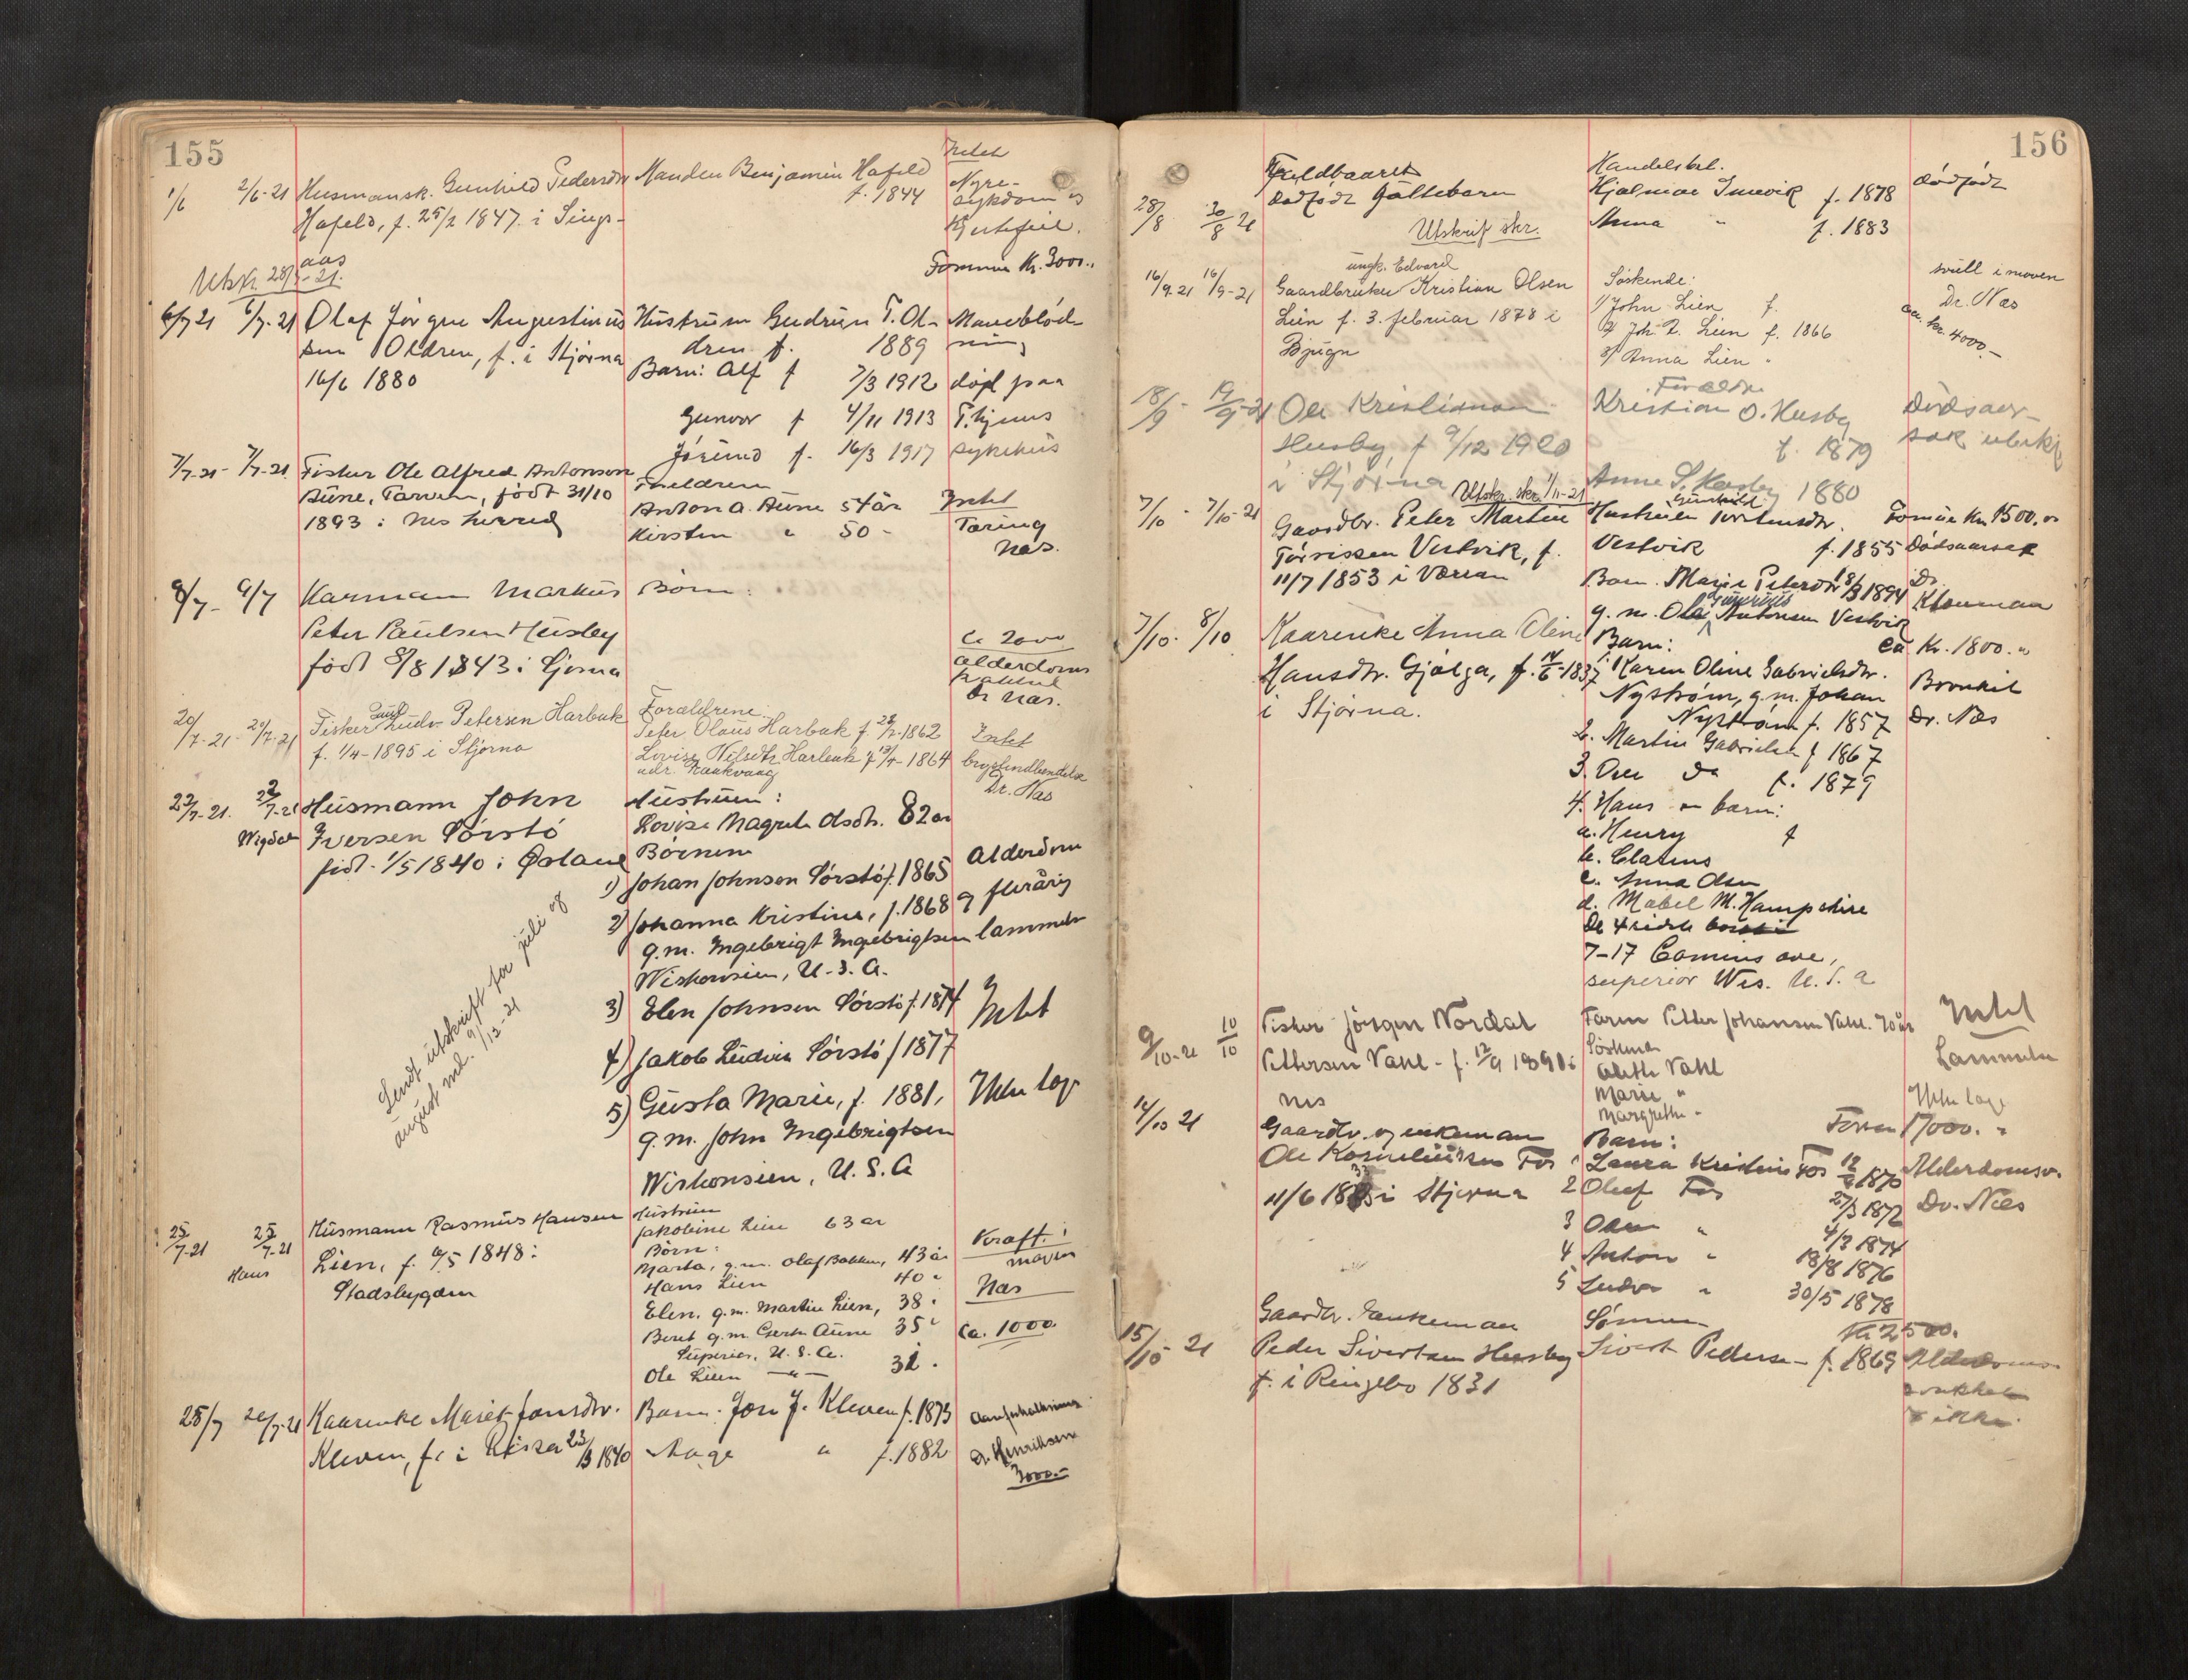 155
1/6 2/6-21 Husmansk. Gunhild Pedersdtr Manden Benjamin Hafeld Intet
Hafeld, f. 25/2 1847 i Sings- f. 1844 Nyre-
aas sykdom og
Hjertefeil.
Utskr. 28/6-21. Formue Kr. 3000.-
6/7 21 6/7-21 Olaf Jörgen Augustinius Hustruen Gudrun T. Ol- Maveblöd-
sen Oldren, f. i Stjörna dren f. 1889 ning
16/6 1880 Barn: Alf f 7/3 1912 död paa
Gunvor f 4/11 1913 T.hjems
Jörund f. 16/3 1917 sykehus
7/7-21 - 7/7-21 Fisker Ole Alfred Antonson Foreldrene
Aune, Tarven, födt 31/10 Anton A. Aune 54 år Intet
1893 i Nes herred Kirsten " 50 - Tæring
Næs.
9/7 - 9/7 Karman Markus Barn:
Peter Paulsen Husby Ca 2000
födt 8/8 1843 i Stjorna alderdoms
Dr Næs.
20/7-21 - 20/7-21 Fisker Ludv. Petersen Harbak Foraldrene
f. 1/4-1895 i Stjorna Peter Olaus Harbak f 28/2-1862 Intet
Lovise Nilsdtr Harbak f 13/4-1864 brystindbendelse
Dr. Næs
22/7-21. 22/7-21 Husmann John Hustruen:
Iversen Sörstö Lovise Magrete Olsdtr. 82 år
födt 1/5 1840 i Örland Börnene
1) Johan Johnson Sörstö f. 1865 Alderdom
2) Johanna Kristine, f. 1868 og fleraarig
g.m. Ingebrigt Ingebrigtsen lammelse
Wiskonsien, U.S.A.
3) Elen Johnsen Sörstö f. 1874 Intet
4) Jakob Ludvig Sörstö f 1877
5) Gusta Marie, f. 1881, Uten læge
g.m. John Ingebrigtsen
Wiskonsien, U.S.A
Sendt utskrift for juli og
august md. 9/12-21
25/7-21 25/7-21 Husmann Rasmus Hansen Hustruen
Hans Lien, f. 6/5 1848 i Jakobine Lien 63 år
Stadsbygden Börn: Kræft i
Marta, g.m. Olaf Bakken, 43 år maven
Hans Lien 40 "
Elen. g.m. Martin Lien, 38 " Næs
Beret g.m. Aune 35 " Ca. 1000
Superior, U.S.A.
Ole Lien — " — 31.
25/7 26/7-21 Kaarenke Marit Jonsdtr. Barn: Jon J. Kleven f. 1873
Kleven, f. i Rissa 23/3 1840 Aage " f. 1882 A. Henriksen
3000.-
156
28/8 30/8 21 Fuldbaaret Handelsbet.
dödfödt Guttebarn Hjalmar Innvik f. 1878 dödfödt
Utskrift skr. Anna " f. 1883
16/9.21 16/9-21 ungk. Edvard Söskende:
Gaardbruker Kristian Olsen 1/ John Lien f. svull i maven
Lien f. 3. februar 1878 i 2/ Joh. L. Lien f. 1866 Dr. Næs
Bjugn 3/ Anna Lien " ca. kr. 4000.-
18/9 - 19/9-21 Ole Kristianson Foraeldre
Husby, f 9/12 1920 Kristian O. Husby Dödsaar-
i Stjörna f. 1879 sak ubekj
Anne S. Husby 1880
Utskr. skr. 1/11-21
7/10 - 7/10-21 Gaardbr. Peter Martin Hustruen Gunhild Formue Kr 1500.00
Törrissen Vestvik, f. Vestvik f. 1855 Dödsaarsak
11/7 1853 i Værran Barn. Marie Petersdtr 18/3 1894 Dr
g.m. Ola Antonsen Vestvik
7/10 - 8/10 Kaarenke Anna Oline Barn: Ca Kr. 1800.-
Hansdtr. Gjölga, f. 14/6-1837 1 Karen Oline Gabrielsdtr. Bronkit
i Stjörna. Nyström, g.m. Johan
Nyström f. 1857 Dr. Næs
2. Martin Gabrielsen f 1867
3. Ove Do f. 1879
4. Hans " barn:
a. Henry f
b. Clarens
c. Anna Olsen
d. Mabel M. Hampshire
De 4 sidste
7-17 Comins ave,
superior Wis. U.S.A
9/10-21 10/10 Fisker Jörgen Nordal Faren Petter Johansen Vahl. 70 år Intet
Pettersen Vahl - f. 12/9 1890 i Söskende
nes Alette Vahl Lammelse
Marie "
Margrethe " Uten læge
14/10 21 Gaardbr. og enkeman Barn: Formue 17000.-
Ole Korneliussen Fos 1 Laura Kristine Fos 12/2 1870 Alderdomsv.
11/6 18 i Stjorna 2 Oluf Fos 27/3 1872 Dr. Næs
3 " 4/2 1874
4 Anton " 18/8 1876
5 Ludv. " 30/5 1878
15/10 21 Gaardbr. Enkeman Sönnen Kr 2500.
Peder Sivertsen Husby Sivert Pedersen - f. 1869
f. i Ringebo 1831